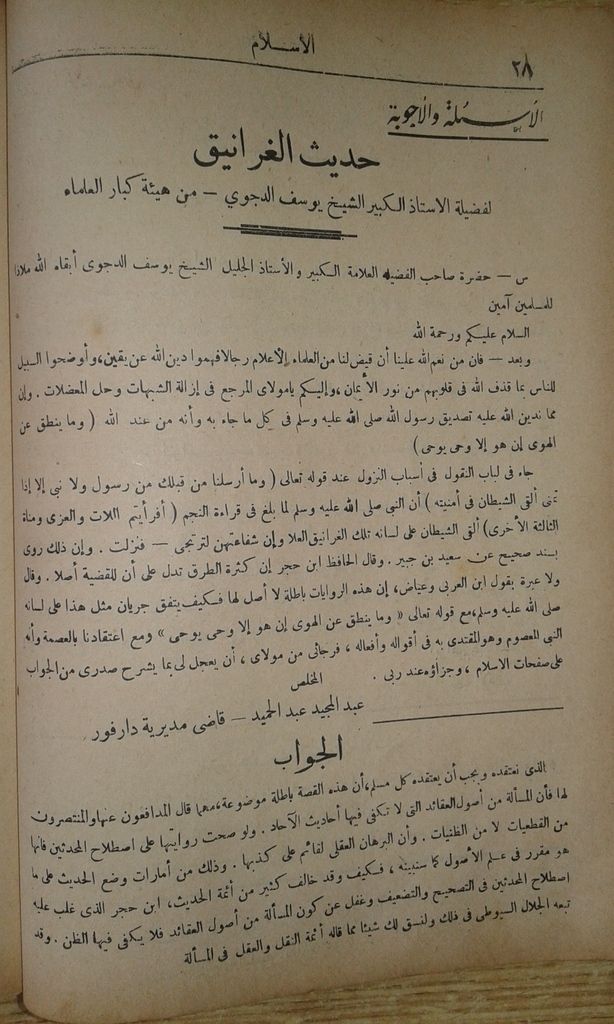 الاسلام
٢٨
الأسئلة والأجوبة
حديث الغرانيق
لفضيلة الاستاذ الكبير الشيخ يوسف الدجوي — من هيئة كبار العلماء
س — حضرة صاحب الفضيله العلامة الكبير والأستاذ الجليل الشيخ يوسف الدجوى أبقاه الله ملاذا
للمسلمين آمين
السلام عليكم ورحمة الله
وبعد — فان من نعم الله علينا أن قيض لنا من العلماء الأعلام رجالا فهموا دين الله عن يقين، وأوضحوا السبيل
للناس بما قذف الله فى قلوبهم من نور الأيمان، وإليكم يامولاى المرجع فى إزالة الشبهات وحل المعضلات . وإن
مما ندين الله عليه تصديق رسول الله صلى الله عليه وسلم فى كل ما جاء به وأنه من عند الله ( وما ينطق عن
الهوى إن هو إلا وحى يوحى )
جاء فى لباب النقول فى أسباب النزول عند قوله تعالى ( وما أرسلنا من قبلك من رسول ولا نبى إلا إذا
تمنى ألقى الشيطان فى أمنيته ) أن النبى صلى الله عليه وسلم لما بلغ فى قراءة النجم ( أفرأيتم اللات والعزى ومناة
الثالثة الأخرى) ألقى الشيطان على لسانه تلك الغرانيق العلا وإن شفاعتهن لترتجى — فنزلت . وإن ذلك روى
بسند صحيح عن سعيد بن جبير . وقال الحافظ ابن حجر إن كثرة الطرق تدل على أن للقضية أصلا . وقال
ولا عبرة بقول ابن العربى وعياض، إن هذه الروايات باطلة لا أصل لها فكيف يتفق جريان مثل هذا على لسانه
صلى الله عليه وسلم، مع قوله تعالى « وما ينطق عن الهوى إن هو إلا وحى يوحى » ومع اعتقادنا بالعصمة وأنه
النبى المعصوم وهو المقتدى به فى أقواله وأفعاله ، فرجائى من مولاى ، أن يعجل لى بما يشرح صدرى من الجواب
على صفحات الاسلام ، وجزاؤه عند ربى .
المخلص
عبد المجيد عبد الحميد — قاضى مديرية دارفور
الجواب
الذى نعتقده ويجب أن يعتقده كل مسلم، أن هذه القصة باطلة موضوعة، مهما قال المدافعون عنها والمنتصرون
لها فأن المسألة من أصول العقائد التى لا تكفى فيها أحاديث الآحاد . ولو صحت روايتها على اصطلاح المحدثين فانها
من القطعيات لا من الظنيات . وأن البرهان العقلى لقائم على كذبها . وذلك من أمارات وضع الحديث على ما
هو مقرر فى علم الأصول كما سنبينه ، فكيف وقد خالف كثير من أئمة الحديث، ابن حجر الذى غلب عليه
اصطلاح المحدثين فى التصحيح والتضعيف وغفل عن كون المسألة من أصول العقائد فلا يكفى فيها الظن . وقد
تبعه الجلال السيوطى فى ذلك ولنسق لك شيئا مما قاله أئمة النقل والعقل فى المسألة